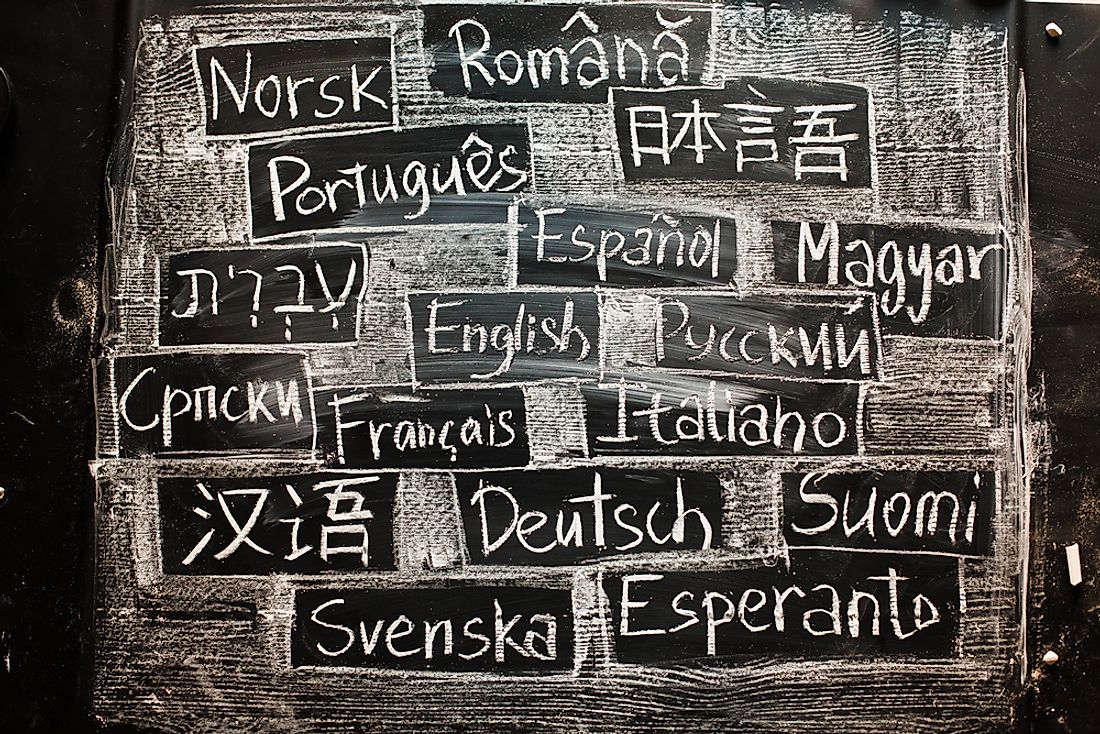 Norsk
Română
日本語
Português
Español
Magyar
עִבְרִית
English
Русский
Српски
Français
Italiano
汉语
Deutsch
Suomi
Svenska
Esperanto